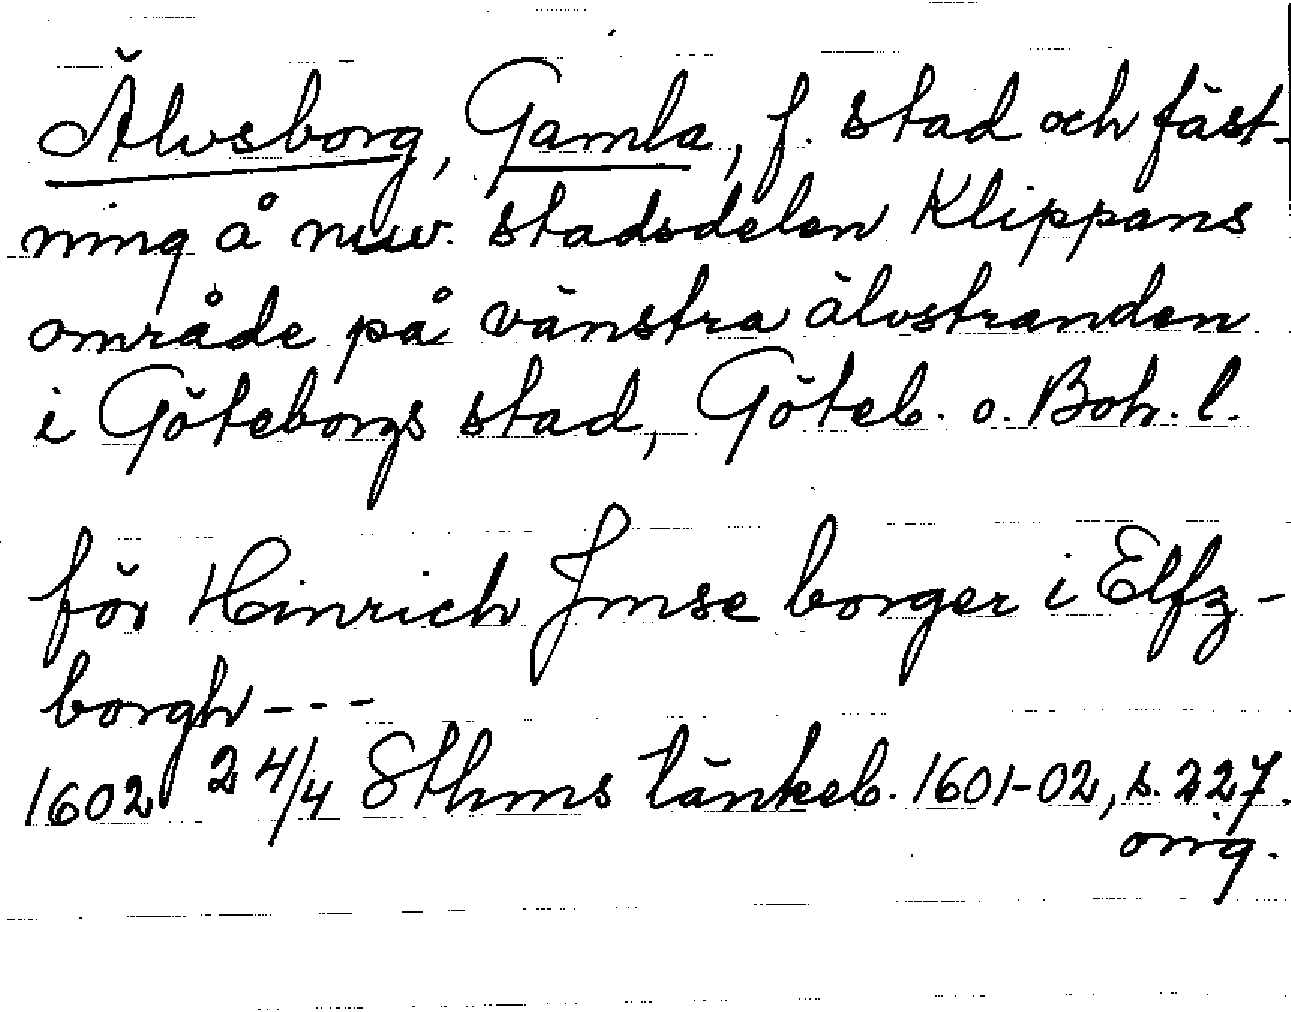 Älvsborg, Gamla, f. stad och fäst-
ning å nuv. stadsdelen Klippans
område på vänstra älvstranden
i Göteborgs stad, Göteb. o. Boh. l.
för Hinrich Jmse borger i Elfz-
borgh ---
1602 24/4 Sthms tänkeb. 1601-02, s. 227.
orig.